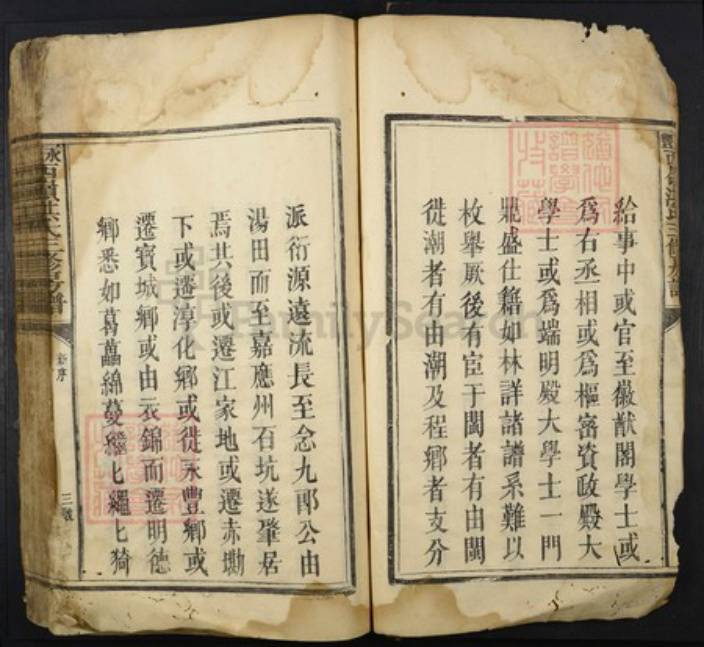 給事中或官至徽猷閣學士或
爲右丞相或爲樞密資政殿大
學士或爲端明殿大學士一門
鼎盛仕籍如林詳諸譜系難以
枚舉厥後有宦于閩者有由閩
徙潮者有由潮及程鄉者支分
派衍源遠流長至念九郎公由
湯田而至嘉應州石坑遂肇居
焉其後或遷江家地或遷赤墈
下或遷淳化鄉或徙永豐鄉或
遷寶城鄉或由衣錦而遷明德
鄉悉如葛藟綿蔓繼匕繩匕猗
三修房譜
新序
三敬
FamilySearch